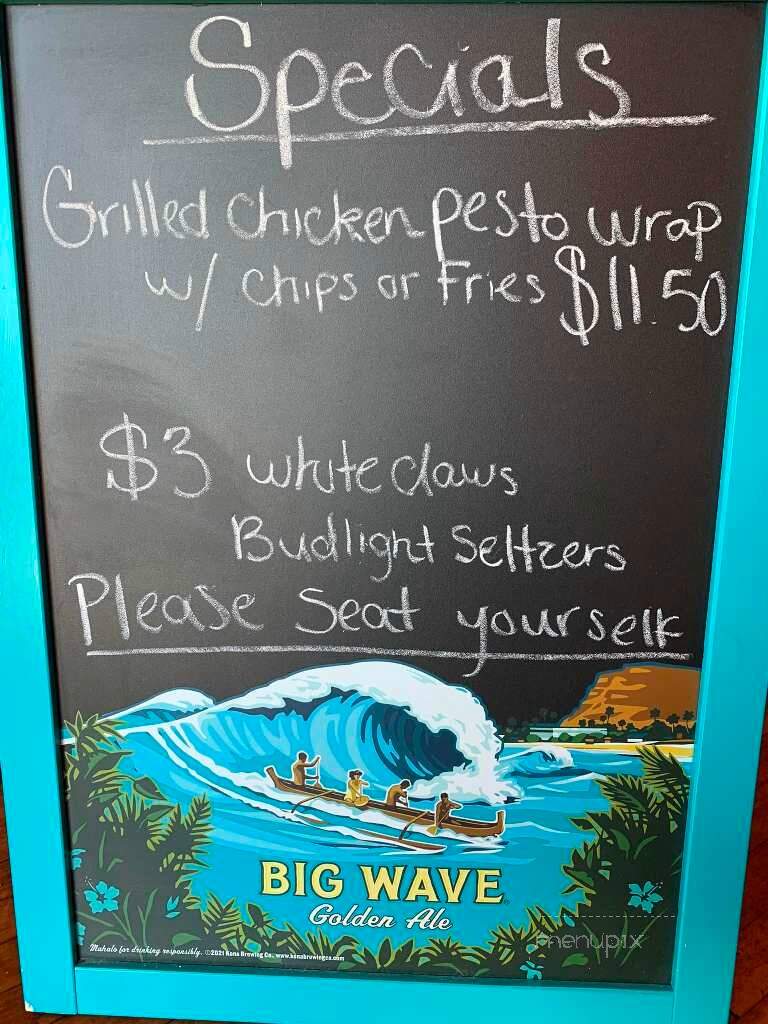 Specials
Grilled Chicken pesto wrap
w/ chips or Fries $11.50
$3 white claws
Budlight Seltzers
Please Seat yourself
BIG WAVE
Golden Ale
Mahalo for drinking responsibly. ©2021 Kona Brewing Co. www.konabrewingco.com
menupix